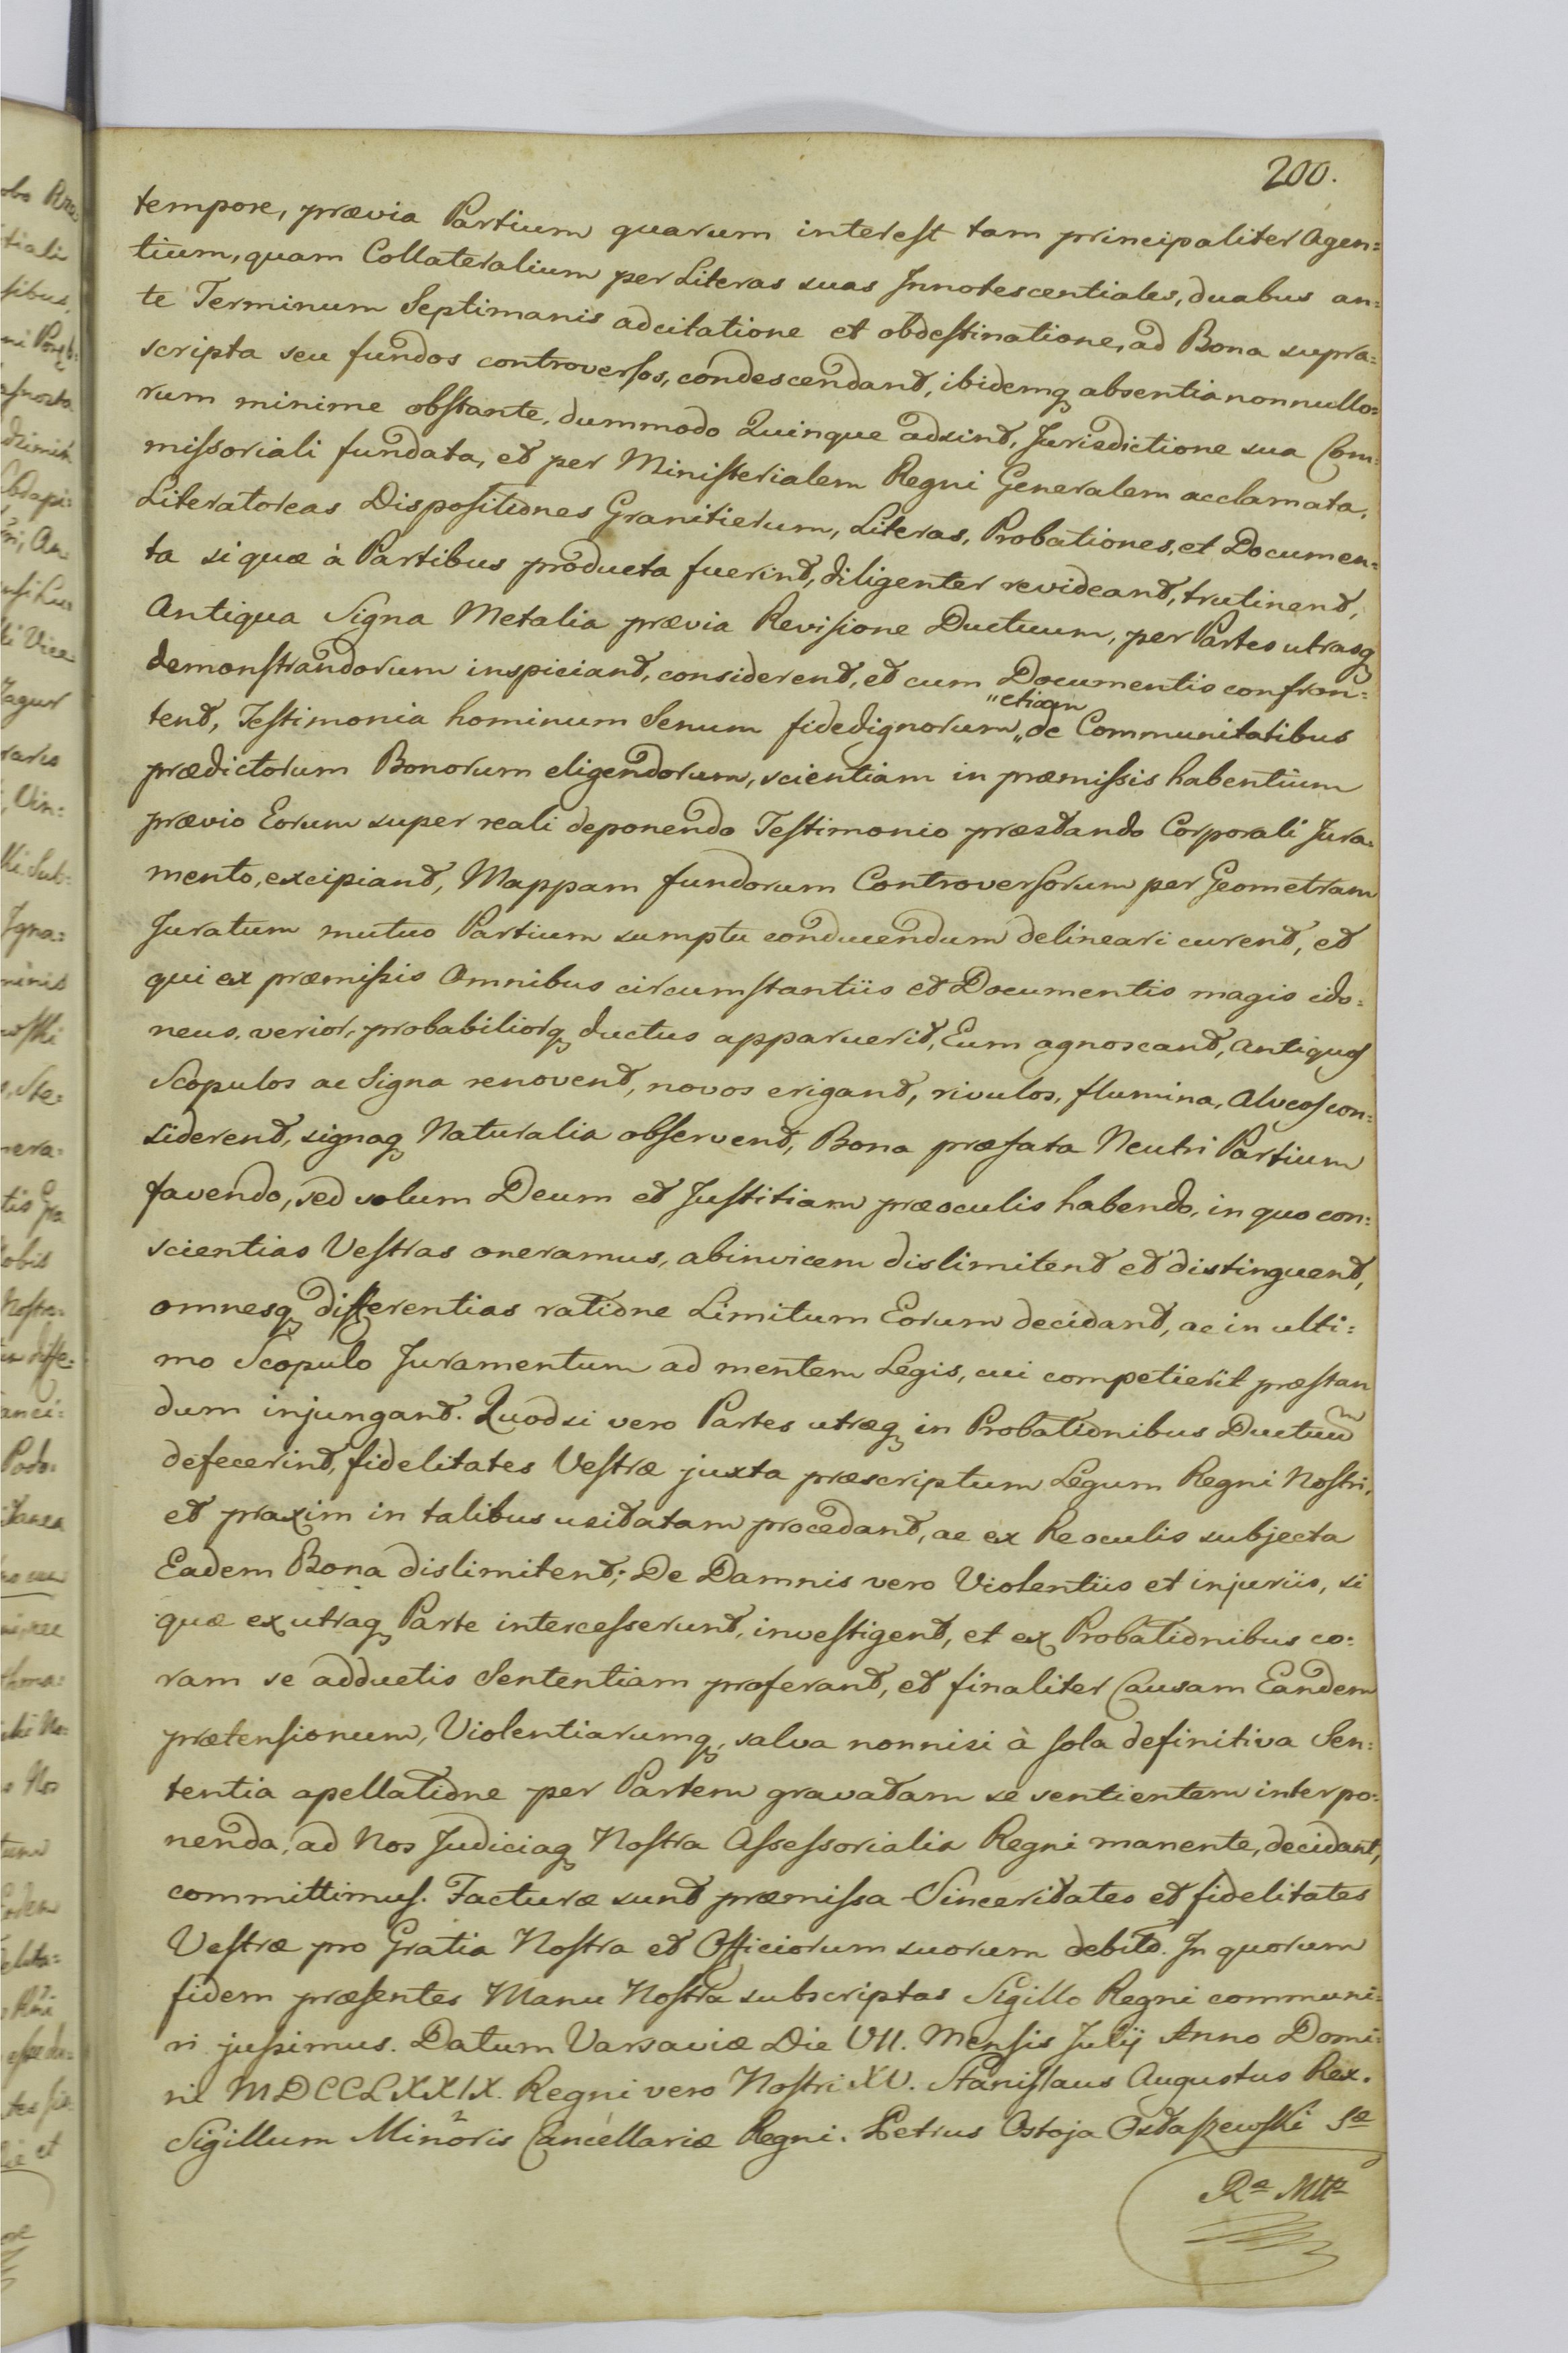 200.
tempore, prævia Partium quarum interest tam principaliter Agen=
tium, quam Collateralium per Literas suas Innotescentiales, duabus an=
te Terminum Septimanis adcitatione et obdestinatione, ad Bona supra=
scripta seu fundos controversos, condescendant, ibidemq absentia nonnullo=
rum minime obstante, dummodo Quinque adsint, Jurisdictione sua Com=
missoriali fundata, et per Ministerialem Regni Generalem acclamata,
Literatoreas Dispositiones Granitierum, Literas, Probationes, et Documen=
ta si quæ à Partibus producta fuerint, diligenter revideant, trutinent,
Antiqua Signa Metalia prævia Revisione Ductuum, per Partes utrasq
demonstrandorum inspiciant, considerent, et cum Documentis confron=
tent, Testimonia hominum Senum fidedignorum „etiam de Communitatibus
prædictorum Bonorum eligendorum, scientiam in præmissis habentium
prævio Eorum super reali deponendo Testimonio præstando Corporali Jura=
mento, excipiant, Mappam fundorum Controversorum per Geometram
Juratum mutuo Partium sumptu conducendum delineari curent, et
qui ex præmissis Omnibus circumstantiis et Documentis magis ido=
neus, verior, probabiliorq ductus apparuerit, Eum agnoscant, antiquos
Scopulos ac Signa renovent, novos erigant, rivulos, flumina, Alveos con=
siderent, signaq Naturalia observent, Bona præfata Neutri Partium
favendo, sed solum Deum et Justitiam præoculis habendo, in quo con=
scientias Vestras oneramus, abinvicem dislimitent et distinguent,
omnesq differentias ratione Limitum Eorum decidant, ac in ulti=
mo Scopulo Juramentum ad mentem Legis, cui competierit præstan
dum injungant. Quodsi vero Partes utræq in Probationibus Ductuum
defecerint, fidelitates Vestræ juxta præscriptum Legum Regni Nostri,
et praxim in talibus usitatam procedant, ac ex Re oculis subjecta
Eadem Bona dislimitent; De Damnis vero Violentiis et injuriis, si
quæ ex utraq Parte intercesserunt, investigent, et ex Probationibus co=
ram se adductis Sententiam proferant, et finaliter Causam Eandem
prætensionum, Violentiarumq, salva nonnisi à sola definitiva Sen=
tentia apellatione per Partem gravatam se sentientem interpo=
nenda, ad Nos Judiciaq Nostra Assessorialia Regni manente, decidant,
committimus. Facturæ sunt præmissa Sinceritates et fidelitates
Vestræ pro Gratia Nostra et Officiorum suorum debito. In quorum
fidem præsentes Manu Nostra subscriptas Sigillo Regni communi=
ri jussimus. Datum Varsaviæ Die VII. Mensis Julij Anno Domi=
ni MDCCLXXIX. Regni vero Nostri XV. Stanislaus Augustus Rex.
Sigillum Minoris Cancellariæ Regni. Petrus Ostoja Ostaszewski Sæ
Ræ Mttis